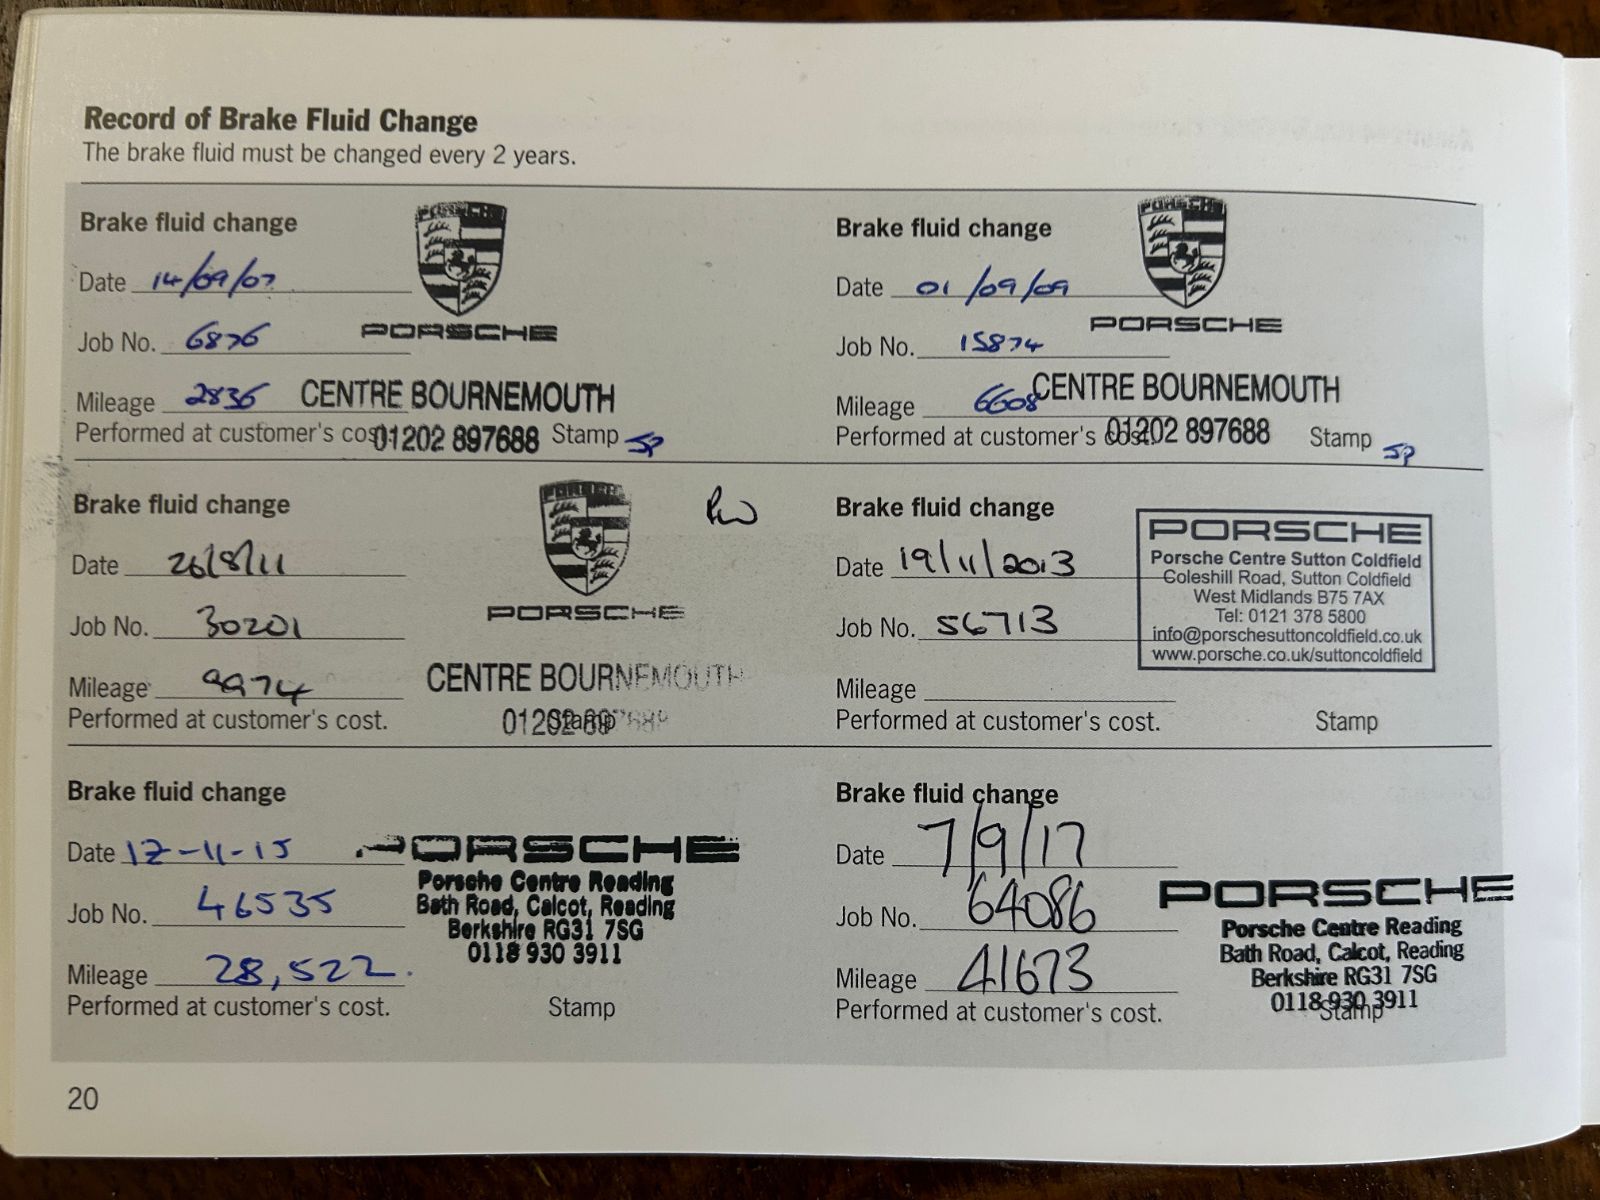 Record of Brake Fluid Change
The brake fluid must be changed every 2 years.
Brake fluid change
Date 14/09/07
Job No. 6876
Mileage 2836
Performed at customer's cost.
Stamp
PORSCHE
PORSCHE
CENTRE BOURNEMOUTH
01202 897688
SP
Brake fluid change
Date 01/09/09
Job No. 15874
Mileage 6608
Performed at customer's cost.
Stamp
PORSCHE
PORSCHE
CENTRE BOURNEMOUTH
01202 897688
SP
Brake fluid change
Date 26/8/11
Job No. 30201
Mileage 9974
Performed at customer's cost.
Stamp
PORSCHE
PORSCHE
CENTRE BOURNEMOUTH
01202 897688
Brake fluid change
Date 19/11/2013
Job No. 56713
Mileage
Performed at customer's cost.
Stamp
PORSCHE
Porsche Centre Sutton Coldfield
Coleshill Road, Sutton Coldfield
West Midlands B75 7AX
Tel: 0121 378 5800
info@porschesuttoncoldfield.co.uk
www.porsche.co.uk/suttoncoldfield
Brake fluid change
Date 12-11-15
Job No. 46535
Mileage 28,522.
Performed at customer's cost.
Stamp
PORSCHE
Porsche Centre Reading
Bath Road, Calcot, Reading
Berkshire RG31 7SG
0118 930 3911
Brake fluid change
Date 7/9/17
Job No. 64086
Mileage 41673
Performed at customer's cost.
Stamp
PORSCHE
Porsche Centre Reading
Bath Road, Calcot, Reading
Berkshire RG31 7SG
0118 930 3911
20